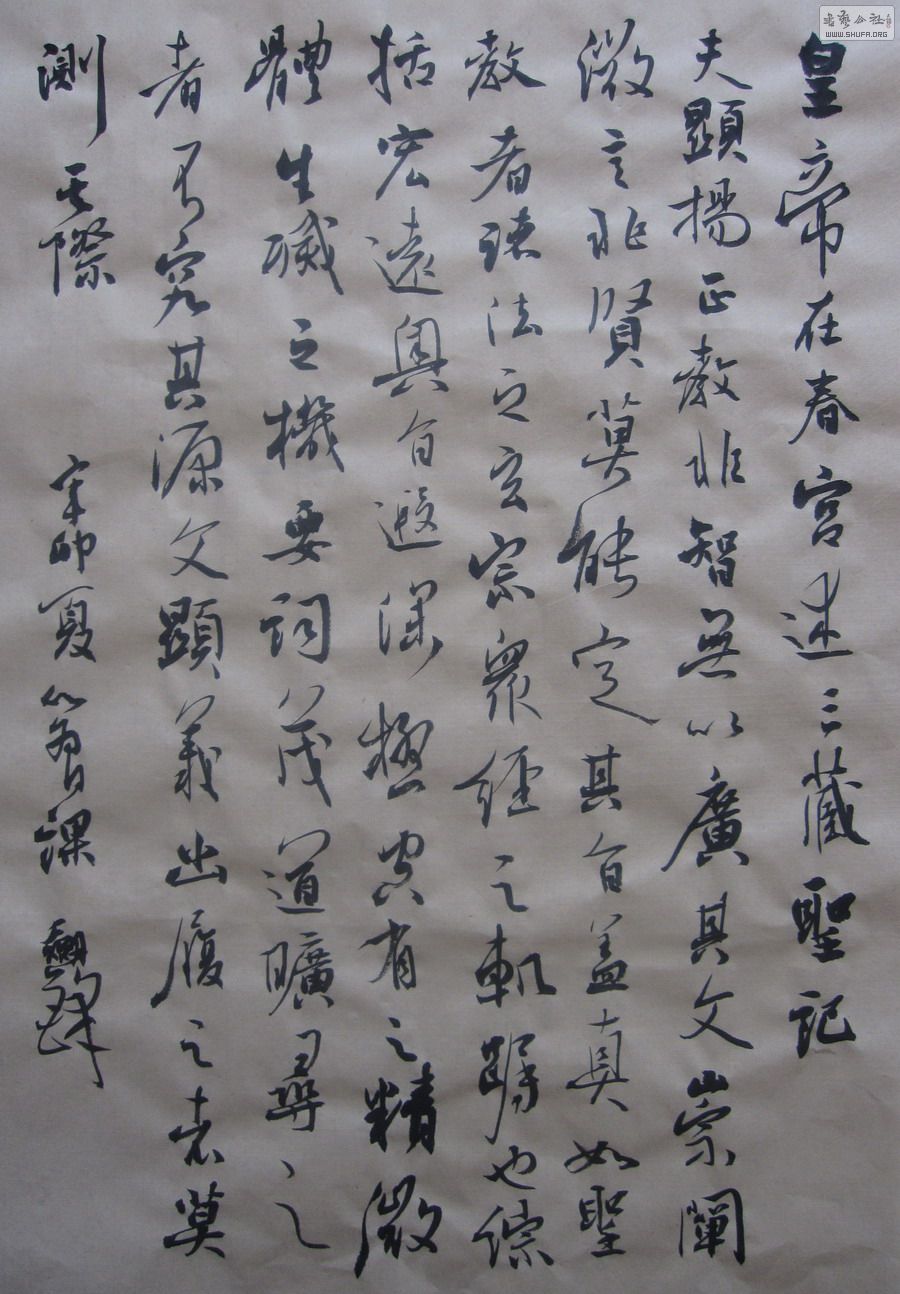 皇帝在春宮述三藏聖記
夫顯揚正教非智無以廣其文崇闡
微言非賢莫能定其旨蓋真如聖
教者諸法之玄宗衆經之軌躅也綜
括宏遠奧旨遐深極空有之精微
體生滅之機要詞茂道曠尋之
者不究其源文顯義出履之者莫
測其際
辛卯夏以為日課
書藝公社
WWW.SHUFA.ORG